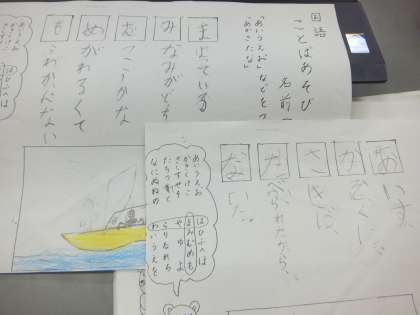 国語
ことばあそび
名前
「あいうえお」などをつ
「あかさたな」
まよっている
みなみがどち
むこうかな
めがわるくて
もうわかんない
あいす
かぞくに
さきに
たべられたから、
ないた。
あいうえお
かきくけこ
さしすせそ
たちつてと
なにぬねの
はひふへほ
まみむめも
やゆよ
らりるれろ
わいうえを